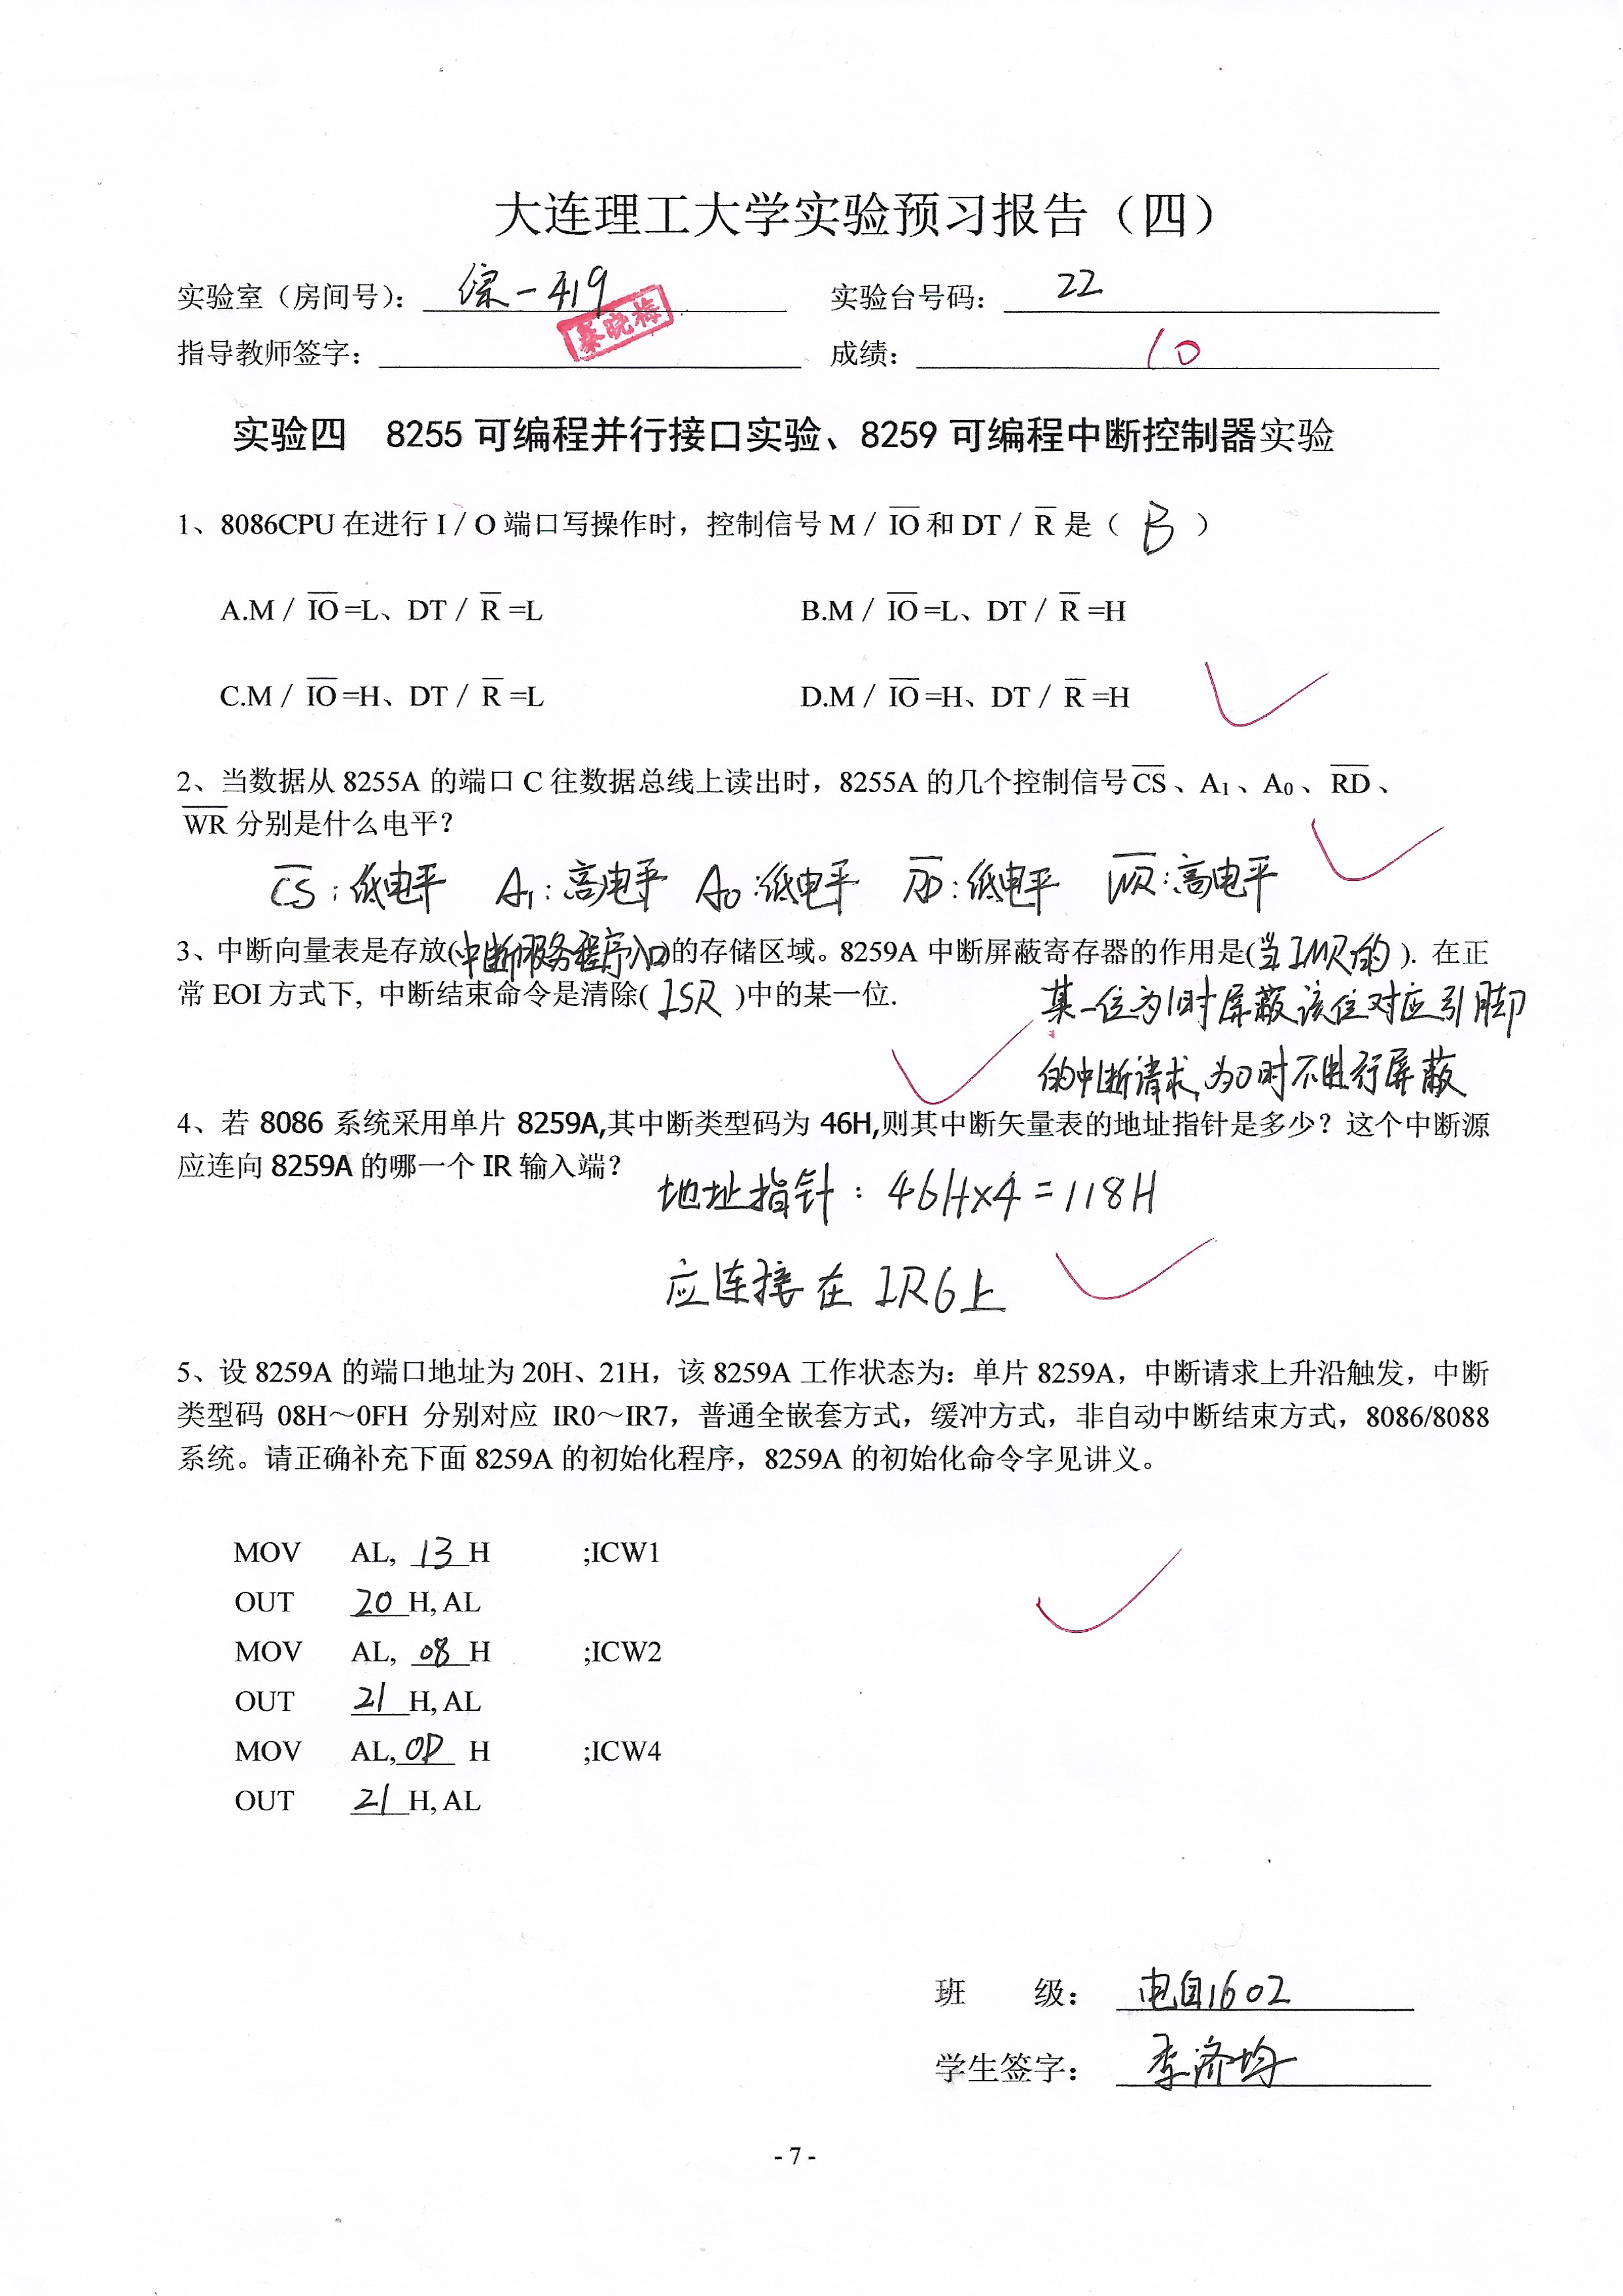 大连理工大学实验预习报告（四）
实验室（房间号）： 综一419 实验台号码： 22
蔡晓梅
指导教师签字： 成绩： 10
实验四 8255 可编程并行接口实验、8259 可编程中断控制器实验
1、8086CPU 在进行 I / O 端口写操作时，控制信号 M / I̅O̅ 和 DT / R̅ 是（ B ）
A.M / I̅O̅ =L、DT / R̅ =L B.M / I̅O̅ =L、DT / R̅ =H
C.M / I̅O̅ =H、DT / R̅ =L D.M / I̅O̅ =H、DT / R̅ =H
2、当数据从 8255A 的端口 C 往数据总线上读出时，8255A 的几个控制信号 C̅S̅ 、A₁ 、A₀ 、R̅D̅ 、
W̅R̅ 分别是什么电平？
C̅S̅：低电平 A₁：高电平 A₀：低电平 R̅D̅：低电平 W̅R̅：高电平
3、中断向量表是存放(中断服务程序入口)的存储区域。8259A 中断屏蔽寄存器的作用是(当IMR的 ). 在正
常 EOI 方式下, 中断结束命令是清除( ISR )中的某一位.
某一位为1时屏蔽该位对应引脚
的中断请求,为0时不进行屏蔽
4、若 8086 系统采用单片 8259A,其中断类型码为 46H,则其中断矢量表的地址指针是多少？这个中断源
应连向 8259A 的哪一个 IR 输入端？
地址指针：46H×4=118H
应连接在 IR6上
5、设 8259A 的端口地址为 20H、21H，该 8259A 工作状态为：单片 8259A，中断请求上升沿触发，中断
类型码 08H～0FH 分别对应 IR0～IR7，普通全嵌套方式，缓冲方式，非自动中断结束方式，8086/8088
系统。请正确补充下面 8259A 的初始化程序，8259A 的初始化命令字见讲义。
MOV AL, 13 H ;ICW1
OUT 20 H, AL
MOV AL, 08 H ;ICW2
OUT 21 H, AL
MOV AL, 0D H ;ICW4
OUT 21 H, AL
班 级： 电自1602
学生签字： 李济均
- 7 -